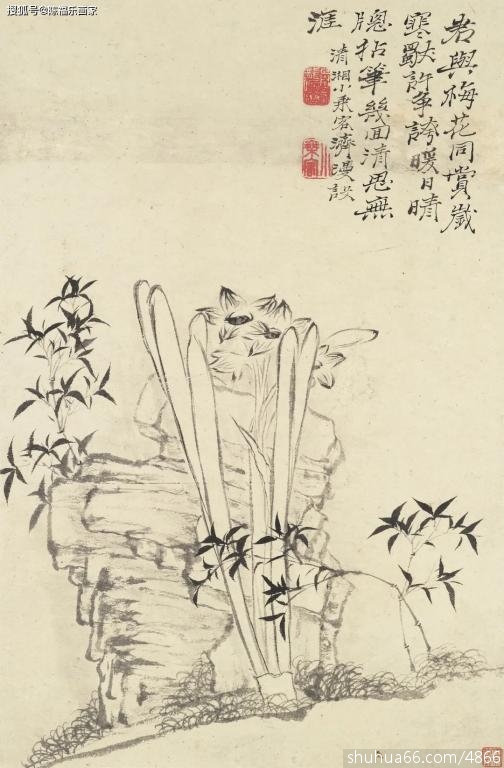 搜狐号@陈福乐画家
君與梅花同賞歲
寒獨許爭誇暖日晴
牕拈筆幾回清思無
涯
清湘小乘客濟漫設
shuhua66.com/4866